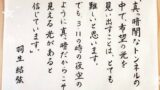 「真っ暗闇なトンネルの
中で、希望の光を
見い出すことは、とても
難しいと思います。
でも3.11の時の夜空の
ように真っ暗だからこそ
見える光があると
信じています。」
羽生結弦